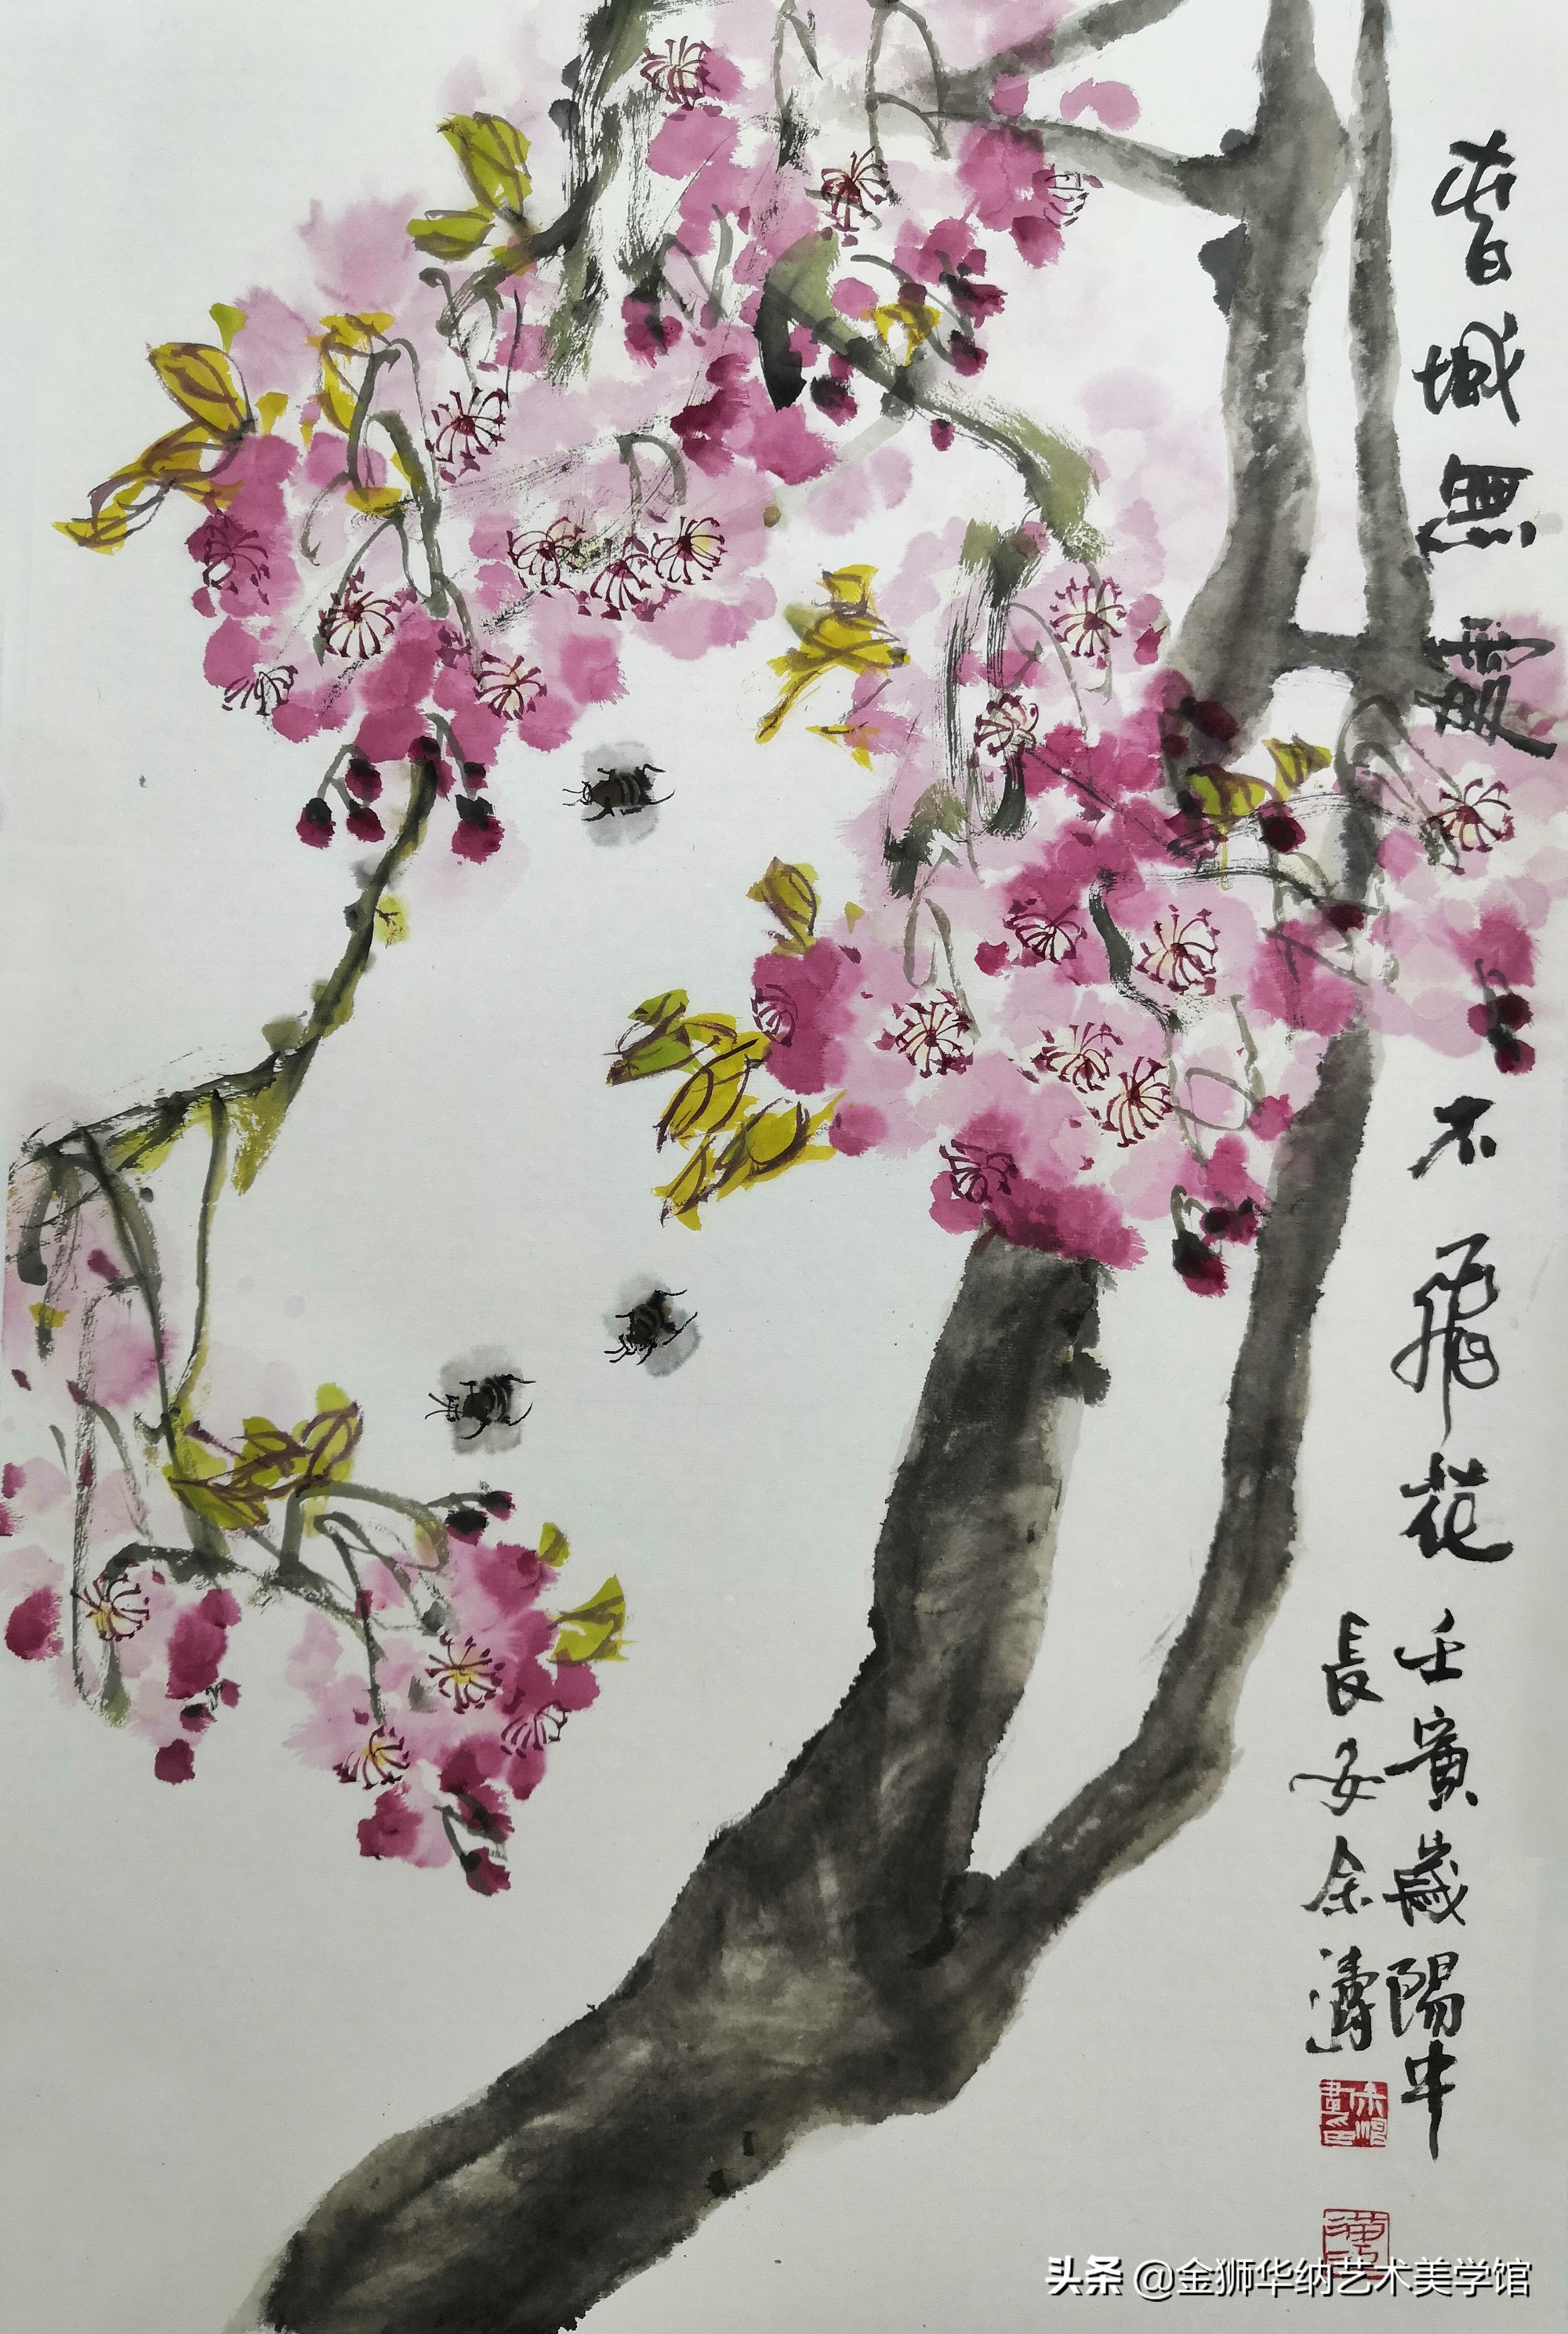 春城無處不飛花
壬寅歲陽中
長安余濤
头条 @金狮华纳艺术美学馆